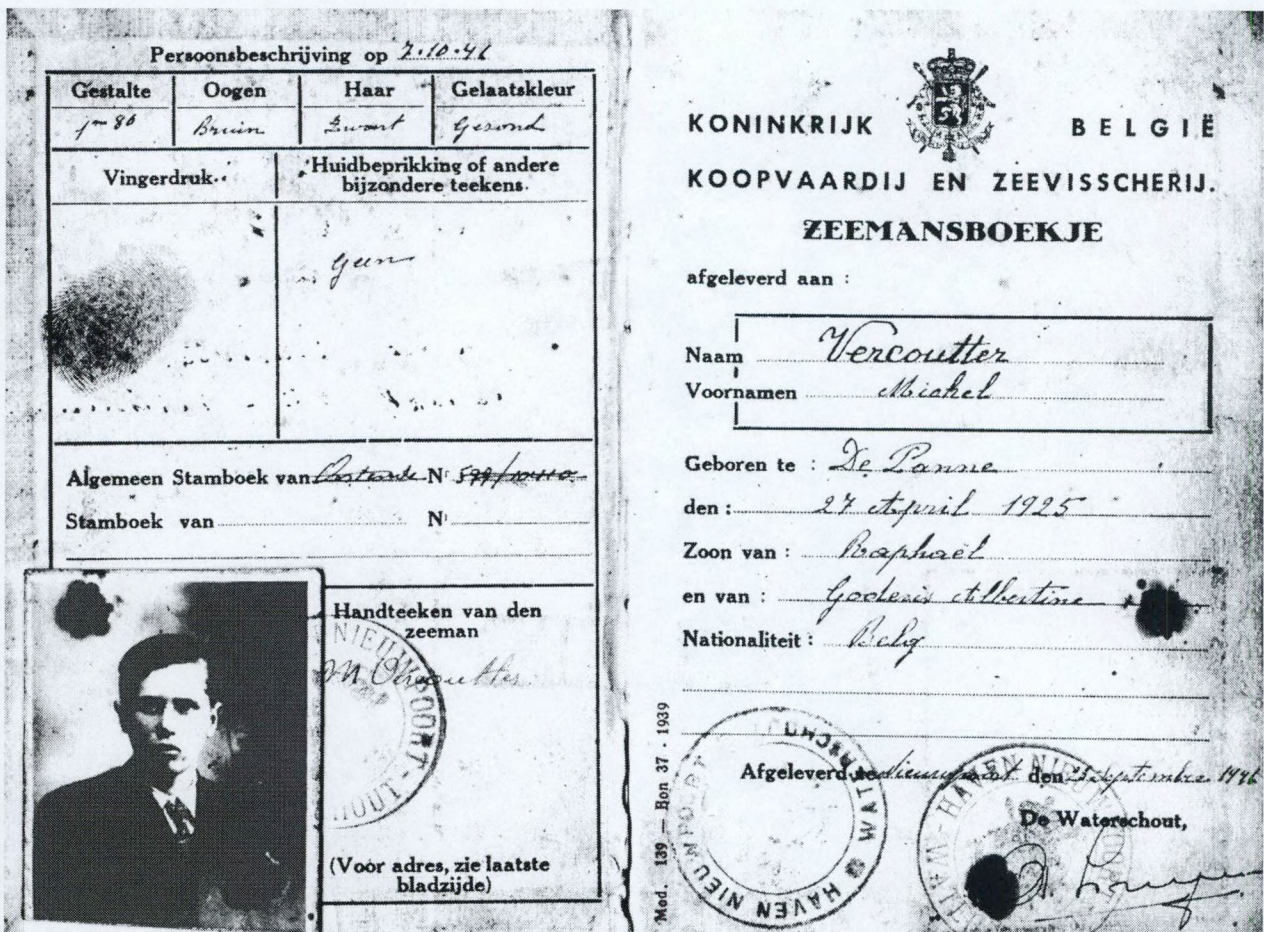 Persoonsbeschrijving op 7.10.46
Gestalte Oogen Haar Gelaatskleur
1m 80 Bruin Zwart Gezond
Vingerdruk.
Huidbeprikking of andere
bijzondere teekens.
Geen
Algemeen Stamboek van Oostende Nr
Stamboek van Nr
Handteeken van den
zeeman
M Vercoutter
NIEUWPOORT
(Voor adres, zie laatste
bladzijde)
KONINKRIJK BELGIË
KOOPVAARDIJ EN ZEEVISSCHERIJ.
ZEEMANSBOEKJE
afgeleverd aan :
Naam Vercoutter
Voornamen Michel
Geboren te : De Panne
den : 27 April 1925
Zoon van : Raphaël
en van : Goderis Albertine
Nationaliteit : Belg
Afgeleverd te Nieuwpoort den September 1946
De Waterschout,
WATERSCHOUT HAVEN NIEUWPOORT
HAVEN NIEUWPOORT
Mod. 139 — Bon 37 - 1939